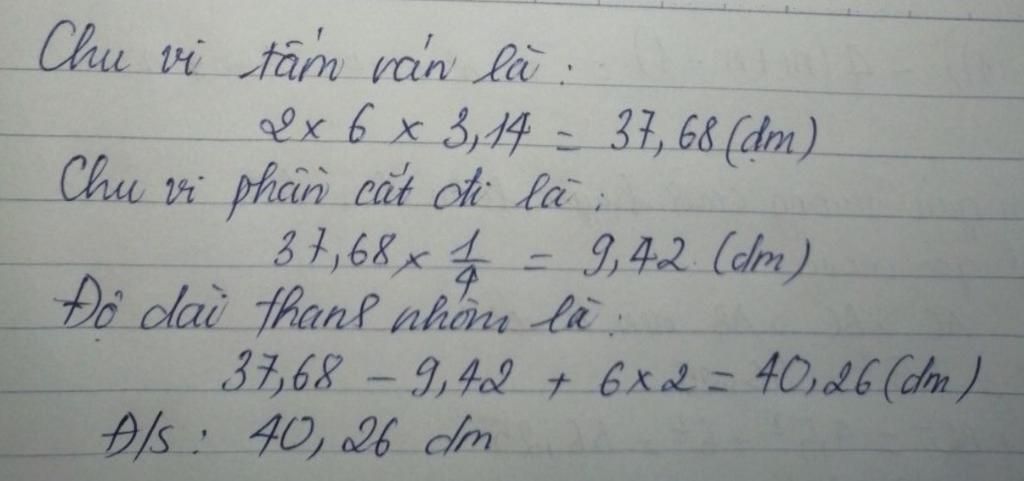 Chu vi tấm ván là :
2 x 6 x 3,14 = 37,68 (dm)
Chu vi phần cắt đi là :
37,68 x 1/4 = 9,42 (dm)
Độ dài thanh nhôm là :
37,68 - 9,42 + 6 x 2 = 40,26 (dm)
Đ/s : 40,26 dm